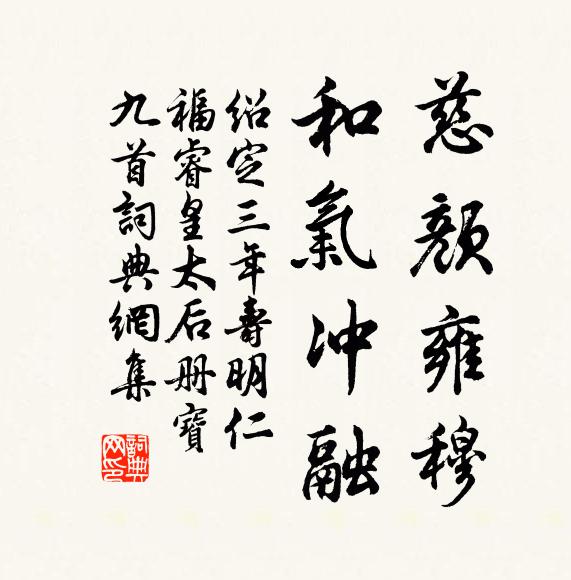 慈顏雍穆
和氣沖融
紹定三年壽明仁
福睿皇太后册寶
九首詞典網集
詞典网印